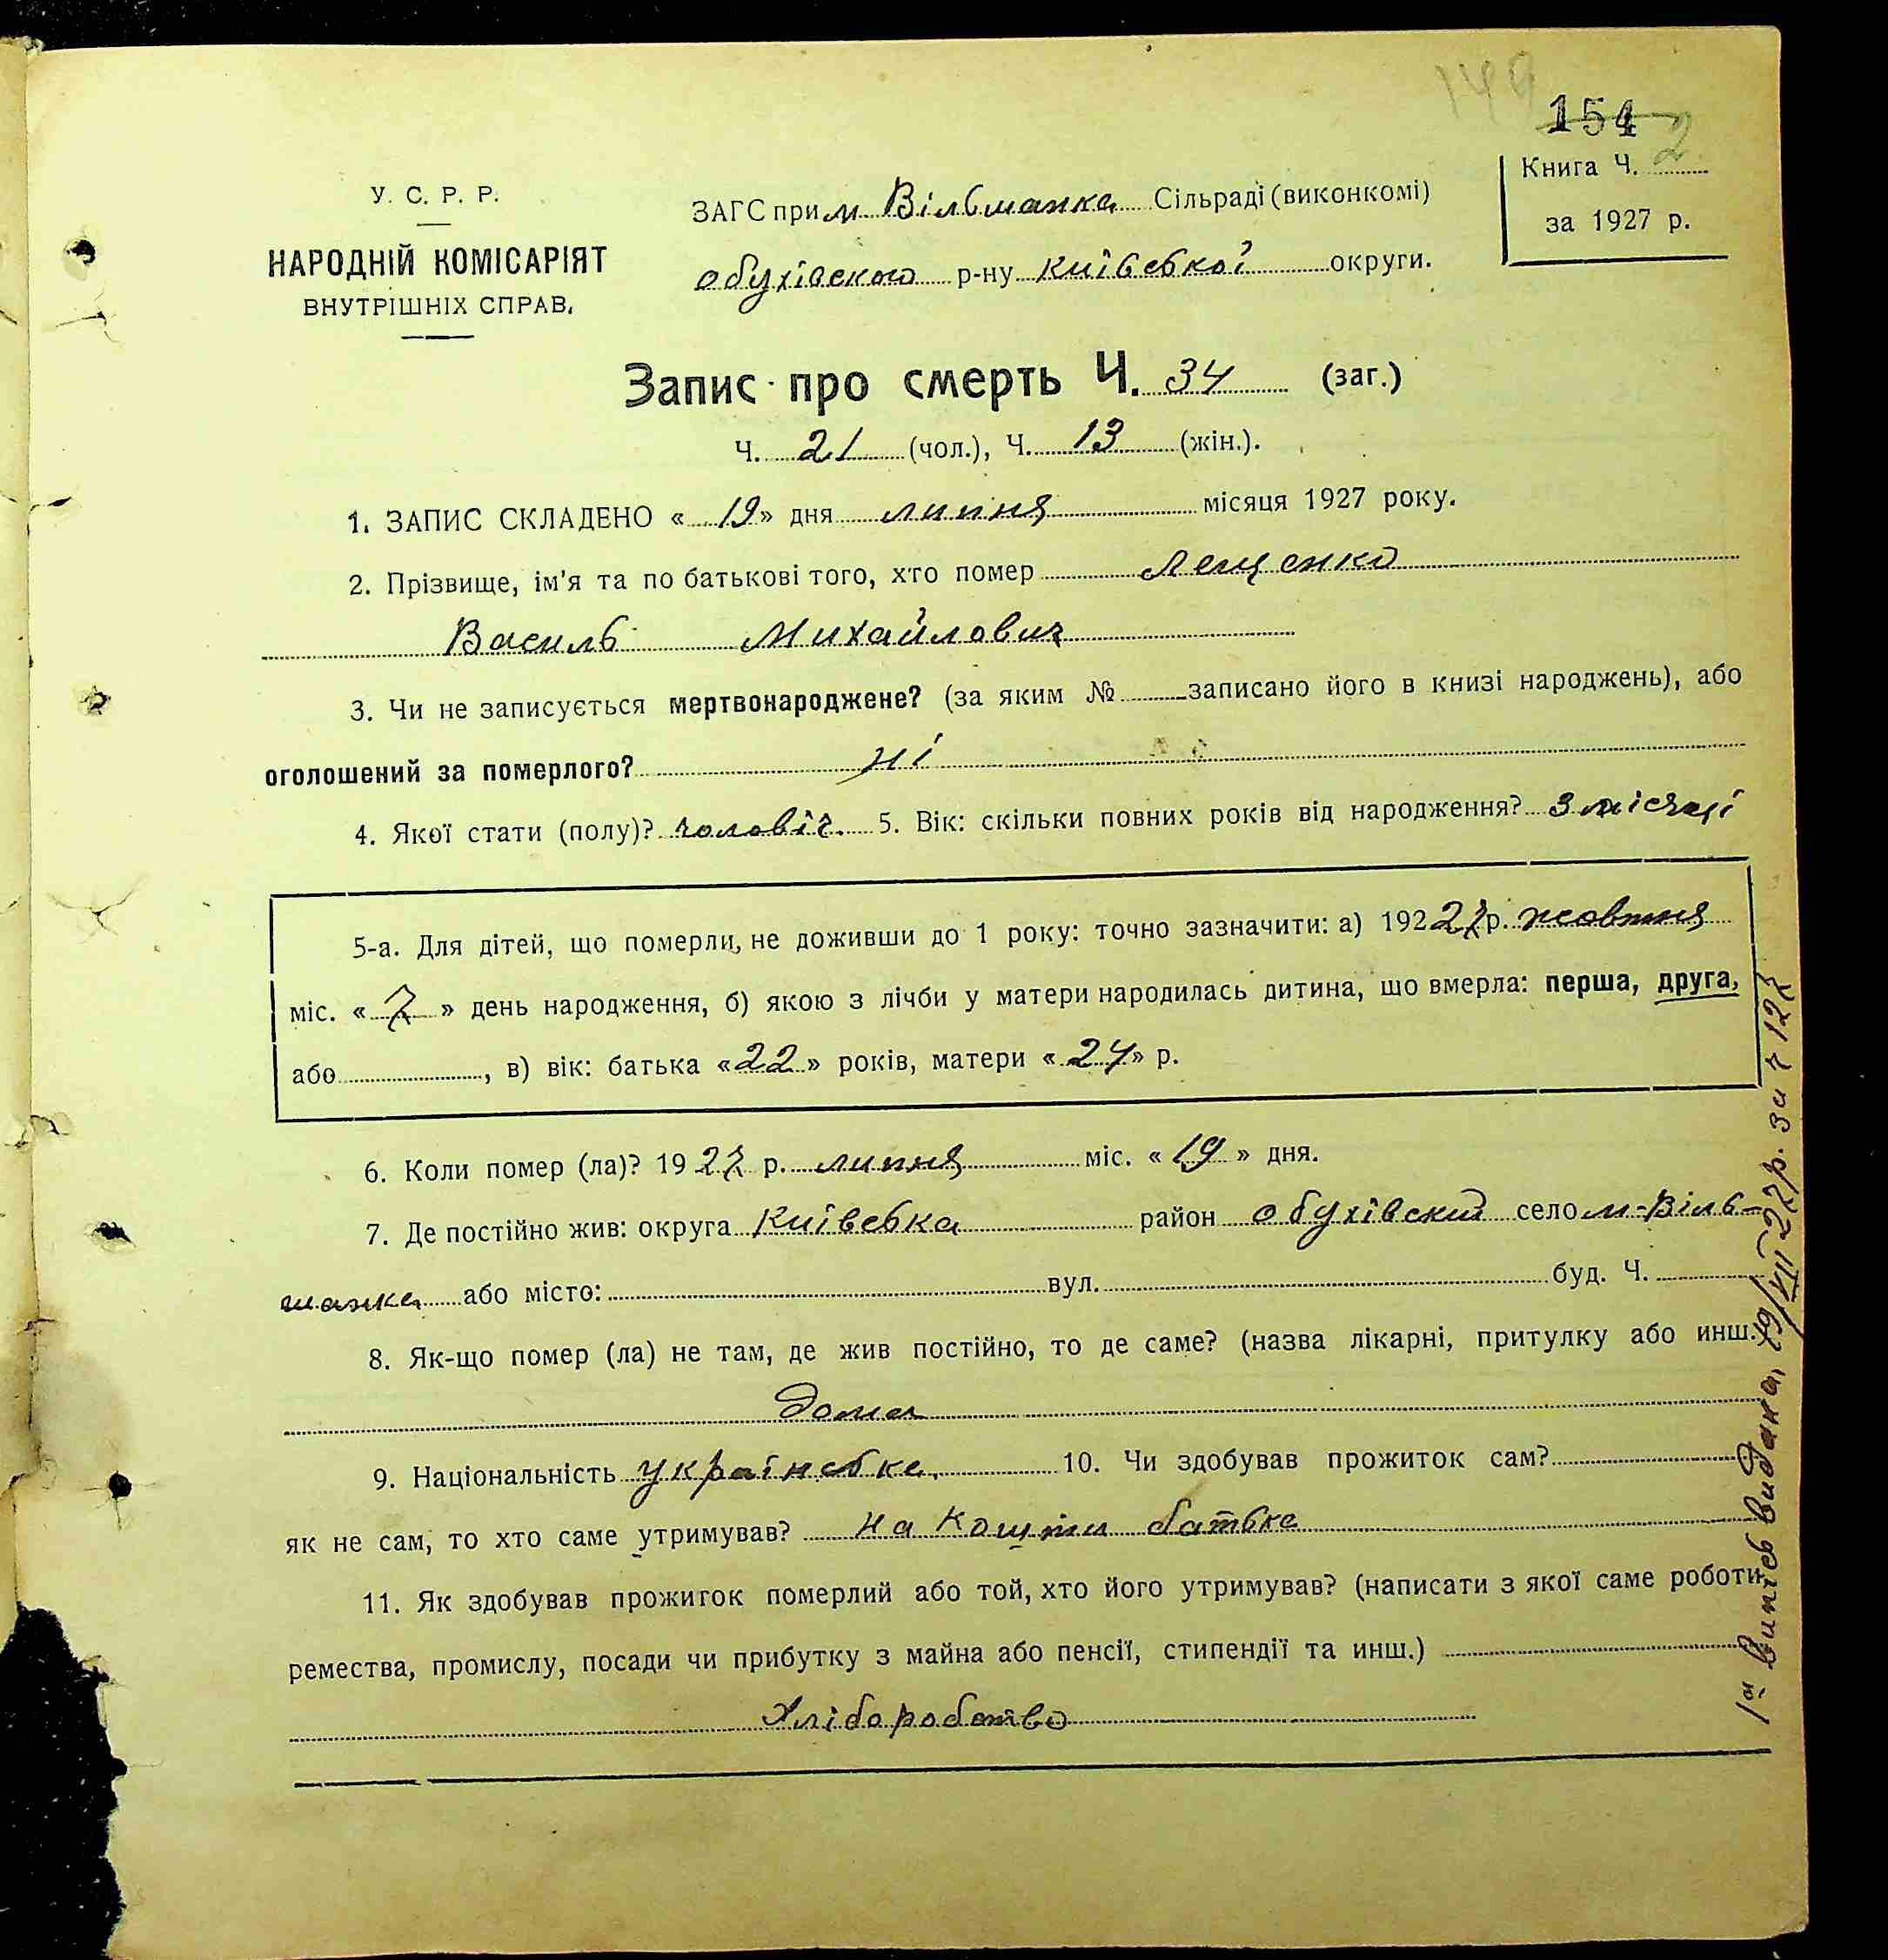 149
154
2
Книга Ч.
за 1927 р.
У. С. Р. Р.
НАРОДНІЙ КОМІСАРІЯТ
ВНУТРІШНІХ СПРАВ.
ЗАГС при м Вільшанка Сільраді (виконкомі)
обухівского р-ну Київської округи.
Запис про смерть Ч. 34 (заг.)
Ч. 21 (чол.), Ч. 13 (жін.).
1. ЗАПИС СКЛАДЕНО « 19 » дня липня місяця 1927 року.
2. Прізвище, ім'я та по батькові того, хто помер Лещенко
Василь Михайлович
3. Чи не записується мертвонароджене? (за яким № записано його в книзі народжень), або
оголошений за померлого? ні
4. Якої стати (полу)? чоловіч. 5. Вік: скільки повних років від народження? 3 місяці
5-а. Для дітей, що померли, не доживши до 1 року: точно зазначити: а) 192 27 р. жовтня
міс. « 7 » день народження, б) якою з лічби у матери народилась дитина, що вмерла: перша, друга,
або , в) вік: батька «22» років, матери «24» р.
6. Коли помер (ла)? 1927 р. липня міс. « 19 » дня.
7. Де постійно жив: округа Київська район обухівский село м-Віль-
шанка або місто: вул. буд. Ч.
8. Як-що помер (ла) не там, де жив постійно, то де саме? (назва лікарні, притулку або инш.
дома
9. Національність українська. 10. Чи здобував прожиток сам?
як не сам, то хто саме утримував? на кошти батька
11. Як здобував прожиток померлий або той, хто його утримував? (написати з якої саме роботи
ремества, промислу, посади чи прибутку з майна або пенсії, стипендії та инш.)
Хліборобство
1а випісь видана, 19/VII 27 р. за ч 127